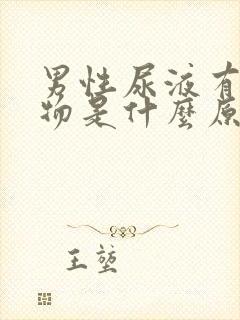 男性尿液有
物是什麼原
王堃